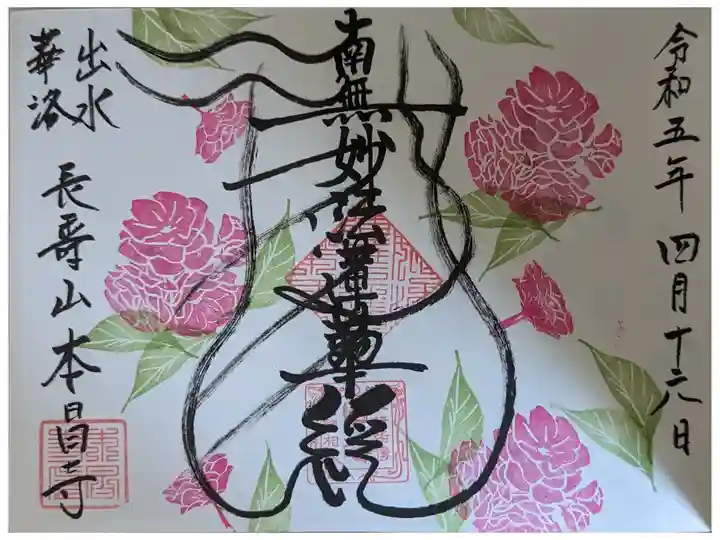 令和五年四月十六日
南無妙法蓮華経
出水
華洛
長壽山本昌寺